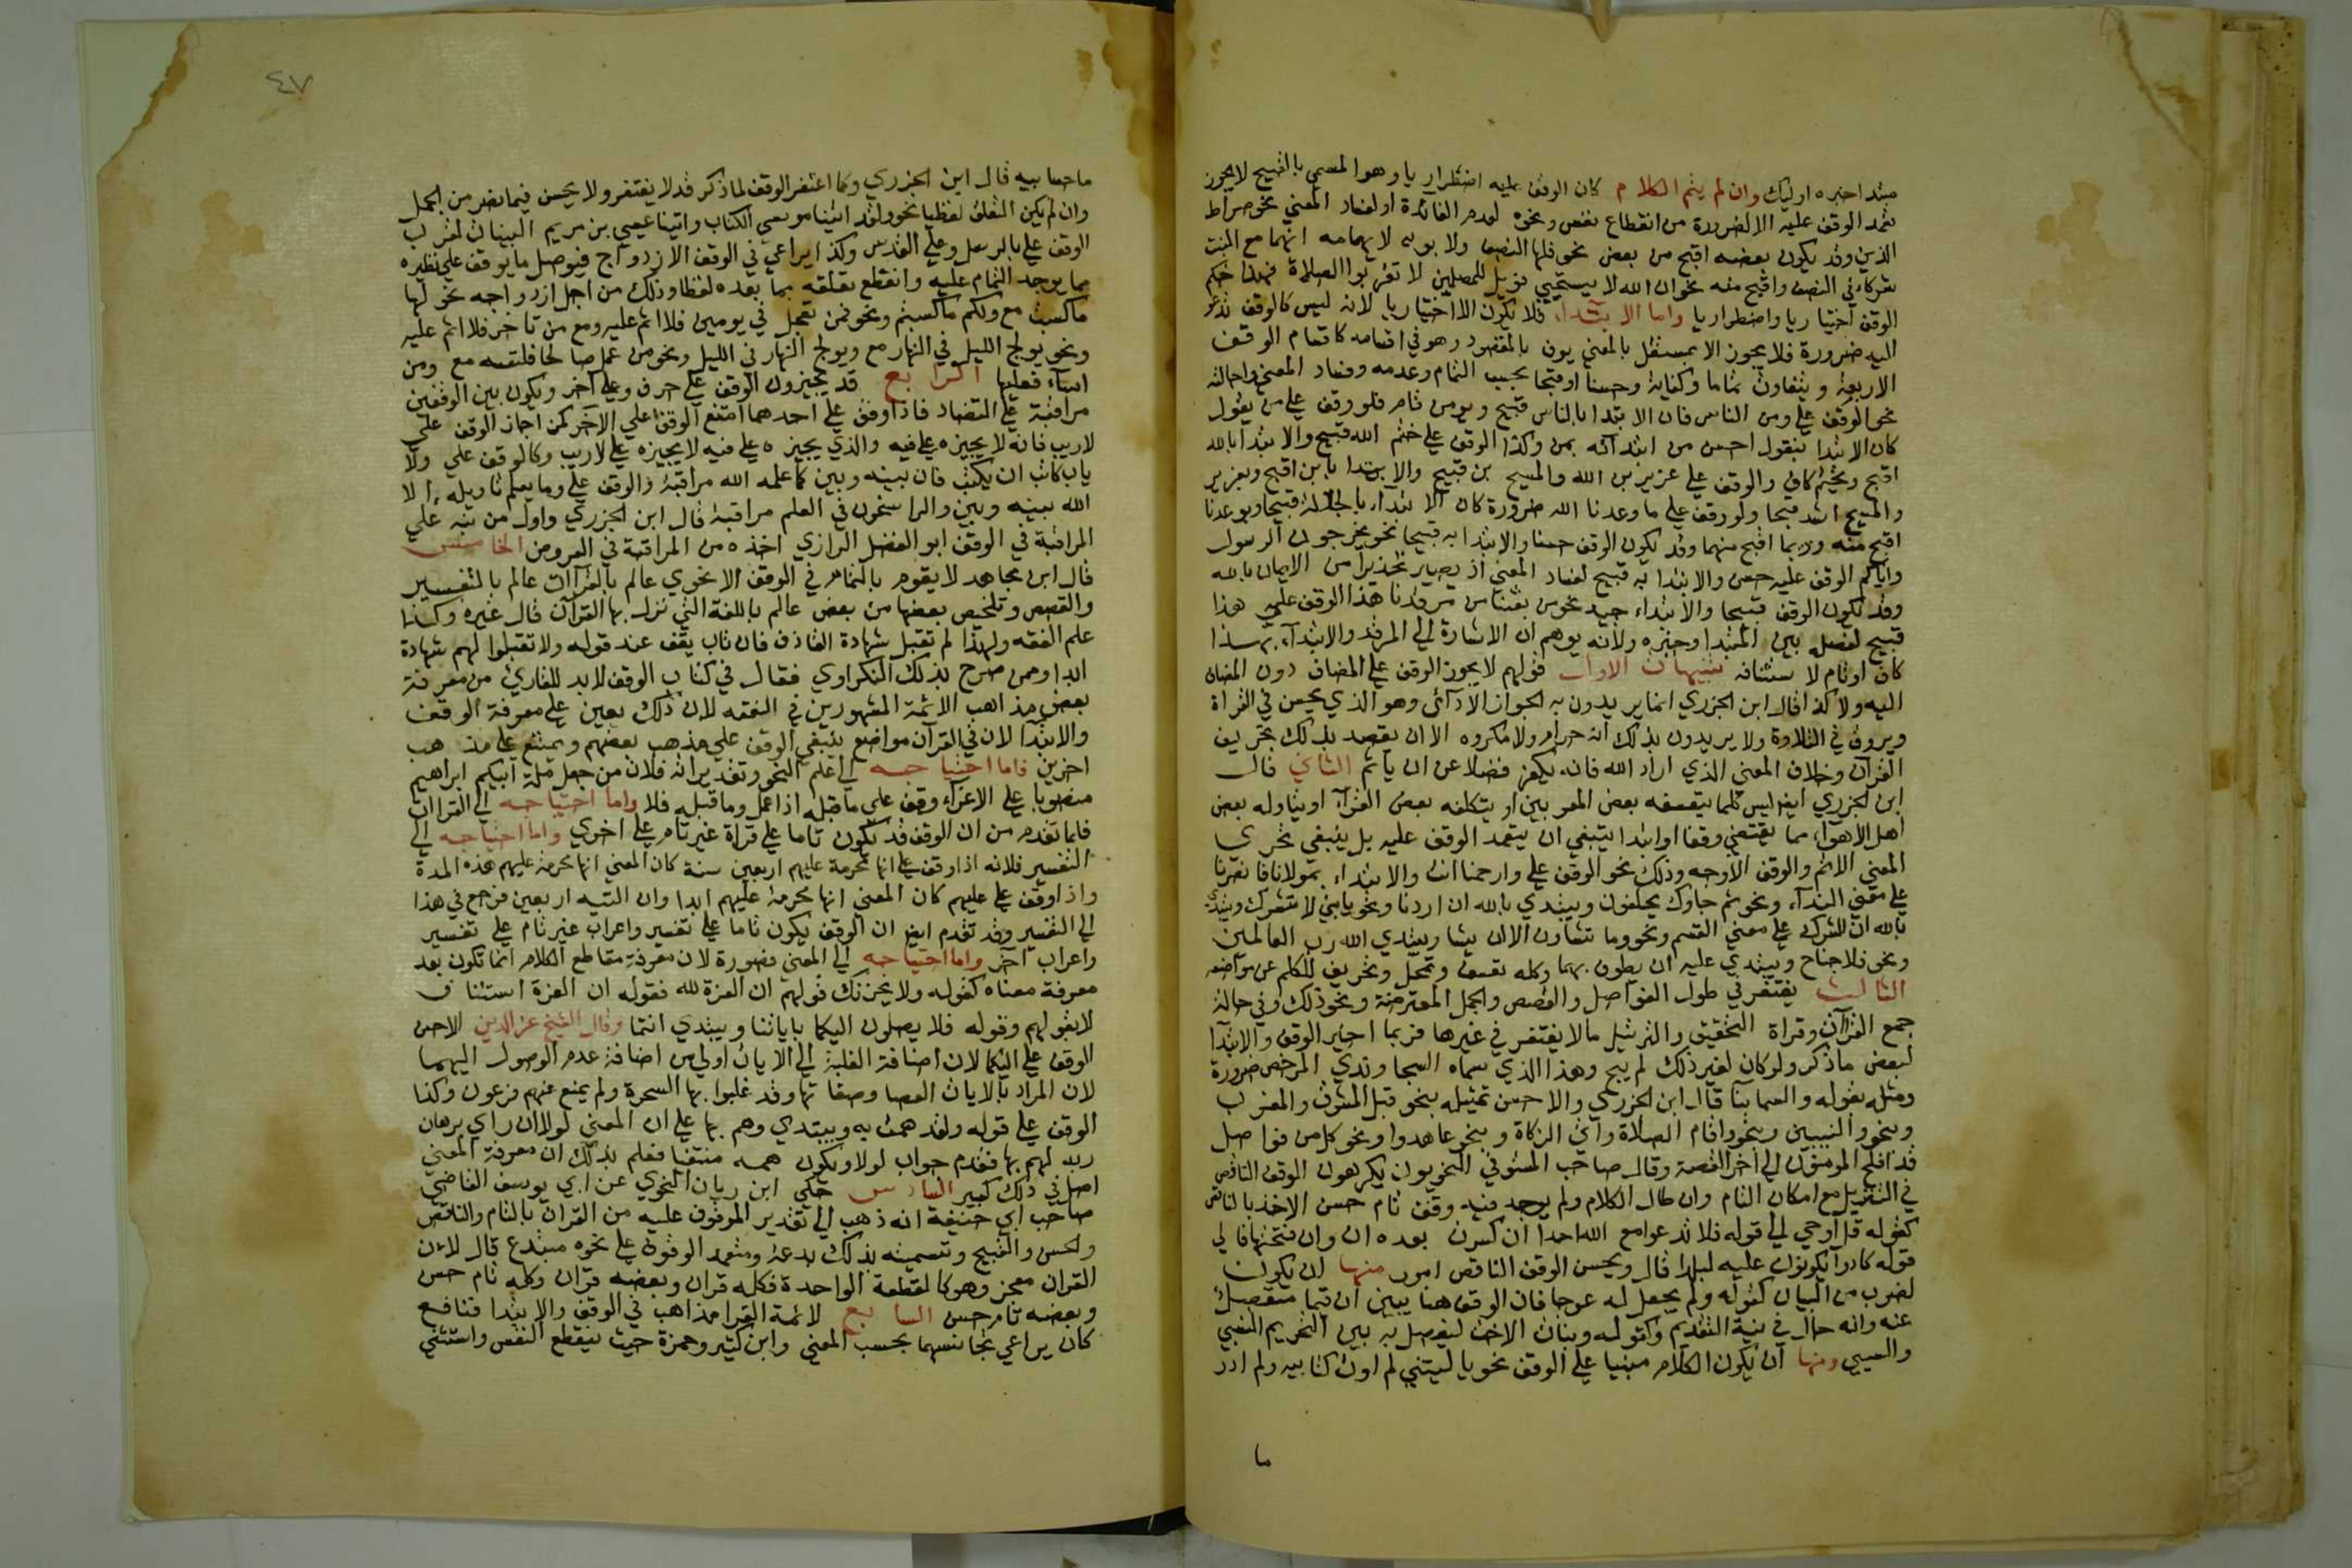 مبتدا خبره اوليك وان لم يتم الكلام كان الوقف عليه اضطراريا وهو المسمي بالقبيح لا يجوز
تعمد الوقف عليه الا لضرورة من انقطاع نفس ونحوه لعدم الفائدة او لفساد المعني نحو صراط
الذين وقد يكون بعضه اقبح من بعض نحو فلها النصف ولا بويه لا يهامه انهما مع البنت
شركاء في النصف واقبح منه نحو ان الله لا يستحيي فويل للمصلين لا تقربوا الصلاة فهذا حكم
الوقف اختياريا واضطراريا واما الابتداء فلا يكون الا اختياريا لانه ليس كالوقف تدعو
اليه ضرورة فلا يجوز الا بمستقل بالمعني يوف بالمقصود وهو في اقسامه كاقسام الوقف
الاربعة ويتفاوت تماما وكفاية وحسنا وقبحا بحسب التمام وعدمه وفساد المعني واحالته
نحو الوقف علي ومن الناس فان الابتدا بالناس قبيح ويومن تام فلو وقف علي من يقول
كان الابتدا بيقول احسن من ابتدائه بمن وكذا الوقف علي ختم الله قبيح والابتدا بالله
اقبح وبختم كاف والوقف علي عزير بن الله والمسيح بن قبيح والابتدا بابن اقبح وبعزير
والمسيح اشد قبحا ولو وقف علي ما وعدنا الله ضرورة كان الابتداء بالجلالة قبيحا وبوعدنا
اقبح منه وبما اقبح منهما وقد يكون الوقف حسنا والابتدا به قبيحا نحو يخرجون الرسول
واياكم الوقف عليه حسن والابتدا به قبيح لفساد المعني اذ يصير تحذيرا من الايمان بالله
وقد يكون الوقف قبيحا والابتداء جيد نحو من بعثنا من مرقدنا هذا الوقف علي هذا
قبيح لفصله بين المبتدا وخبره ولانه يوهم ان الاشارة الي المرقد والابتداء بهذا
كاف او تام لا ستئنافه تنبيهات الاول قولهم لا يجوز الوقف علي المضاف دون المضاف
اليه ولا كذا قال ابن الجزري انما يريدون به الجواز الادآئي وهو الذي يحسن في القراة
ويروق في التلاوة ولا يريدون بذلك انه حرام ولا مكروه الا ان يقصد بذلك تحريف
القرآن وخلاف المعني الذي اراد الله فانه يكفر فضلا عن ان ياثم الثاني قال
ابن الجزري ايضا ليس كلما يتعسفه بعض المعربين او يتكلفه بعض القرآء او يتاوله بعض
اهل الاهوآء مما يقتضي وقفا وابتدا ينبغي ان يتعمد الوقف عليه بل ينبغي تحري
المعني الاتم والوقف الاوجه وذلك نحو الوقف علي وارحمنا انت والابتداء بمولانا فانصرنا
علي معني الندآء ونحو ثم جاوك يحلفون ويبتدي بالله ان اردنا ونحو يا بني لا تشرك ويبتدي
بالله ان الشرك علي معني القسم ونحو وما تشاون الا ان يشا ويبتدي الله رب العالمين
ونحو فلا جناح ويبتدي عليه ان يطوف بهما وكله تعسف وتمحل وتحريف للكلم عن مواضعه
الثالث يغتفر في طول الفواصل والقصص والجمل المعترضة ونحو ذلك وفي حالة
جمع القرآن وقراة التحقيق والترتيل مالا يغتفر في غيرها فربما اجيز الوقف والابتدا
لبعض ما ذكر ولو كان لغير ذلك لم يبح وهذا الذي سماه السجاوندي المرخص ضرورة
ومثله بقوله والسما بنا قال ابن الجزري والاحسن تمثيله بنحو قبل المشرق والمغرب
وبنحو والنبيين وبنحو واقام الصلاة وآتي الزكاة وبنحو عاهدوا ونحو كل من فواصل
قد افلح المومنون الي آخر القصة وقال صاحب المستوفي النحويون يكرهون الوقف الناقص
في التنزيل مع امكان التام وان طال الكلام ولم يوجد فيه وقف تام حسن الاخذ بالناقص
كقوله قل اوحي الي قوله فلا تدعوا مع الله احدا ان كسرت بعده ان وان فتحتها فالي
قوله كادوا يكونون عليه لبدا قال ويحسن الوقف الناقص امور منها ان يكون
لضرب من البيان كقوله ولم يجعل له عوجا فان الوقف هنا يبين ان قيما منفصل
عنه وانه حال في نية التقديم وكقوله وبنات الاخت ليفصل به بين التحريم النسبي
والسببي ومنها ان يكون الكلام مبنيا علي الوقف نحو يا ليتني لم اوت كتابيه ولم ادر
ما
٤٧
ما حسابيه قال ابن الجزري وكما اغتفر الوقف لما ذكر قد لا يغتفر ولا يحسن فيما قصر من الجمل
وان لم يكن التعلق لفظيا نحو ولقد اتينا موسي الكتاب واتينا عيسي بن مريم البينات لقرب
الوقف علي بالرسل وعلي القدس وكذا يراعي في الوقف الازدواج فيوصل ما يوقف علي نظيره
مما يوجد التمام عليه وانقطع تعلقه بما بعده لفظا وذلك من اجل ازدواجه نحو لها
ما كسبت مع ولكم ما كسبتم ونحو فمن تعجل في يومين فلا اثم عليه ومع من تاخر فلا اثم عليه
ونحو يولج الليل في النهار مع ويولج النهار في الليل ونحو من عمل صالحا فلنفسه مع ومن
اساء فعليها الرابع قد يجيزون الوقف علي حرف وعلي آخر ويكون بين الوقفين
مراقبة علي التضاد فاذا وقف علي احدهما امتنع الوقف علي الآخر كمن اجاز الوقف علي
لاريب فانه لا يجيزه علي فيه والذي يجيزه علي فيه لا يجيزه علي لاريب وكالوقف علي ولا
ياب كاتب ان يكتب فان بينه وبين كما علمه الله مراقبة والوقف علي وما يعلم تاويله الا
الله بينه وبين والراسخون في العلم مراقبة قال ابن الجزري واول من نبه علي
المراقبة في الوقف ابو الفضل الرازي اخذه من المراقبة في العروض الخامس
قال ابن مجاهد لا يقوم بالتمام في الوقف الا نحوي عالم بالقرآات عالم بالتفسير
والقصص وتلخيص بعضها من بعض عالم باللغة التي نزل بها القرآن قال غيره وكذا
علم الفقه ولهذا لم تقبل شهادة القاذف فان تاب يقف عند قوله ولا تقبلوا لهم شهادة
ابدا وممن صرح بذلك النكزاوي فقال في كتاب الوقف لابد للقاري من معرفة
بعض مذاهب الائمة المشهورين في الفقه لان ذلك يعين علي معرفة الوقف
والابتدا لان في القرآن مواضع ينبغي الوقف علي مذهب بعضهم ويمتنع علي مذهب
اخرين فاما احتياجه الي علم النحو وتقديراته فلان من جعل ملة ابيكم ابراهيم
منصوبا علي الاغراء وقف علي ما قبله اذ اعمل وما قبله فلا واما احتياجه الي القراات
فلما تقدم من ان الوقف قد يكون تاما علي قراة غير تام علي اخري واما احتياجه الي
التفسير فلانه اذا وقف علي انها محرمة عليهم اربعين سنة كان المعني انها محرمة عليهم هذه المدة
واذا وقف علي عليهم كان المعني انها محرمة عليهم ابدا وان التيه اربعين فرجع في هذا
الي التفسير وقد تقدم ايضا ان الوقف يكون تاما علي تفسير واعراب غير تام علي تفسير
واعراب آخر واما احتياجه الي المعني فضرورة لان معرفة مقاطع الكلام انما تكون بعد
معرفة معناه كقوله ولا يحزنك قولهم ان العزة لله فقوله ان العزة استئناف
لا بقولهم وقوله فلا يصلون اليكما باياتنا ويبتدي انتما وقال الشيخ عز الدين الاحسن
الوقف علي اليكما لان اضافة الغلبة الي الايات اولي من اضافة عدم الوصول اليهما
لان المراد بالايات العصا وصفاتها وقد غلبوا بها السحرة ولم يمنع عنهم فرعون وكذا
الوقف علي قوله ولقد همت به ويبتدي وهم بها علي ان المعني لولا ان راي برهان
ربه لهم بها فقدم جواب لولا ويكون همه منتفيا فعلم بذلك ان معرفة المعني
اصل في ذلك كبير السادس حكي ابن برهان النحوي عن ابي يوسف القاضي
صاحب ابي حنيفة انه ذهب الي تقدير الموقوف عليه من القران بالتام والناقص
والحسن والقبيح وتسميته بذلك بدعة ومتعمد الوقوف علي نحوه مبتدع قال لان
القران معجز وهو كالقطعة الواحدة فكله قران وبعضه قران وكله تام حسن
وبعضه تام حسن السابع لائمة القرا مذاهب في الوقف والابتدا فنافع
كان يراعي تجانسهما بحسب المعني وابن كثير وحمزة حيث ينقطع النفس واستثني